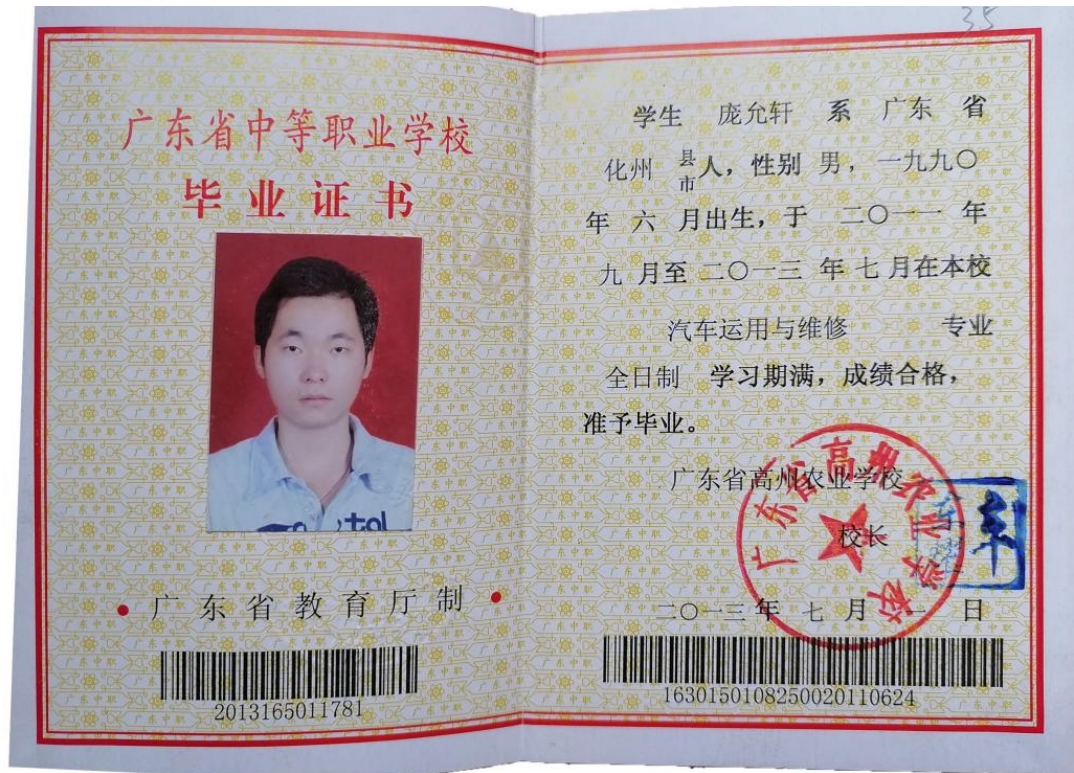 35
广东省中等职业学校
毕业证书
广东省教育厅制
2013165011781
学生 庞允轩 系 广东 省
化州 县市人，性别 男， 一九九〇
年 六 月出生，于 二〇一一 年
九 月至 二〇一三 年 七 月在本校
汽车运用与维修 专业
全日制 学习期满，成绩合格，
准予毕业。
广东省高州农业学校
校长
二〇一三年 七 月 一 日
广东省高州农业学校
163015010825002011​0624